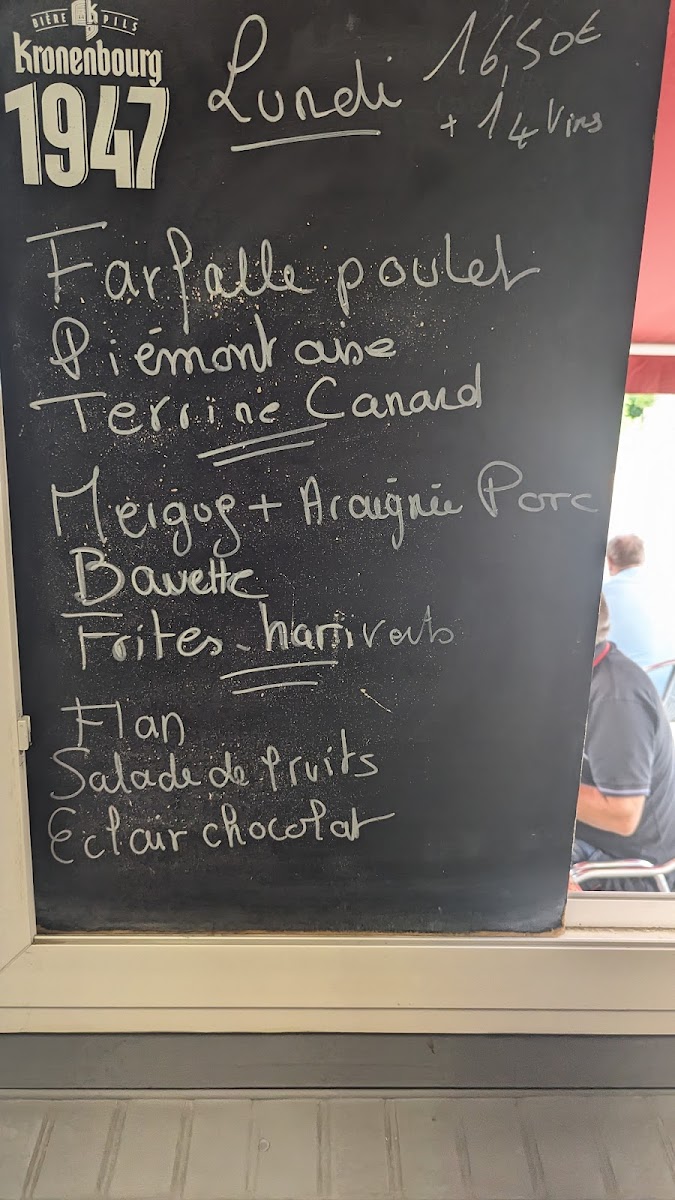 BIÈRE PILS
Kronenbourg
1947
Lundi 16,50€
+ 1/4 Vins
Farfalle poulet
Piémontaise
Terrine Canard
Merguez + Araignée Porc
Bavette
Frites - hari verts
Flan
Salade de fruits
Eclair chocolat